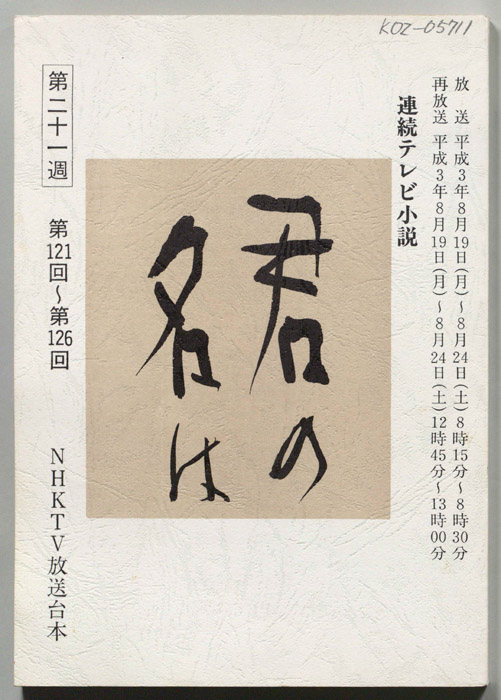 KOZ-05711
放送 平成3年8月19日(月)〜8月24日(土)8時15分〜8時30分
再放送 平成3年8月19日(月)〜8月24日(土)12時45分〜13時00分
連続テレビ小説
君の
名は
第二十一週
第121回〜第126回
NHKTV放送台本